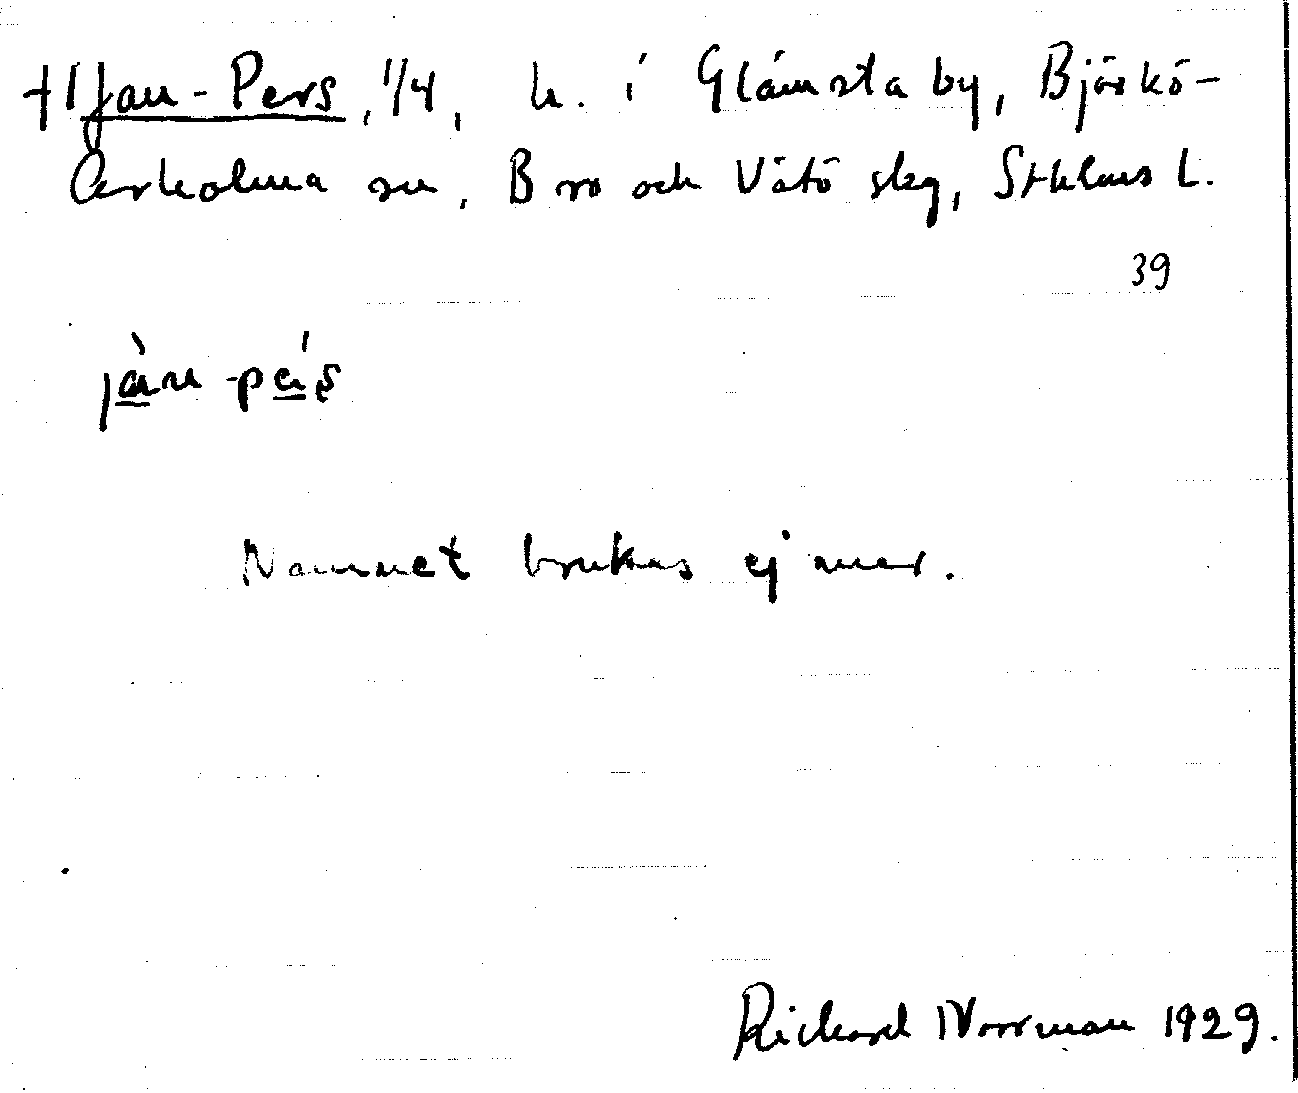 † Jan-Pers, 1/4, h. i Glämsta by, Björkö-
Arholma sn, Bro och Vätö skg, Sthlms L.
39
jàn-pés
Namnet brukas ej mer.
Rickard Norrman 1929.